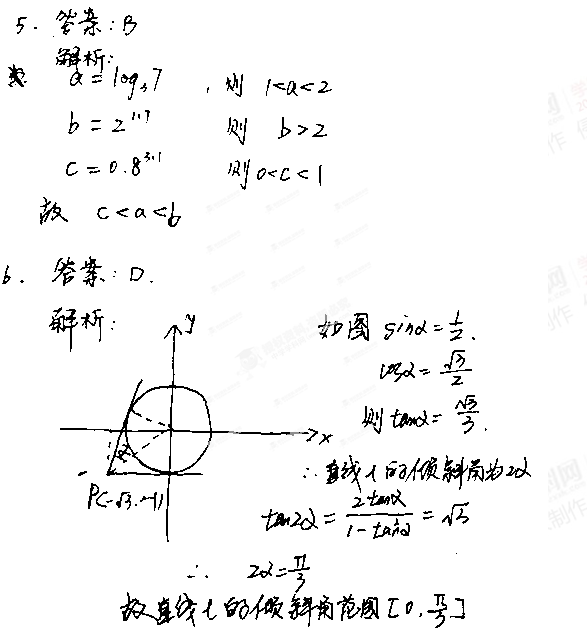 5. 答案:B
解析:
a=log₃7 ,则 1<a<2
b=2^1.1 则 b>2
c=0.8^3.1 则 0<c<1
故 c<a<b
6. 答案:D.
解析:
y
x
P(-√3,-1)
α
如图 sinα=1/2.
cosα=√3/2
则 tanα=√3/3.
∴直线l的倾斜角为2α
tan2α=2tanα/(1-tan²α)=√3
∴ 2α=π/3
故直线l的倾斜角范围[0,π/3]